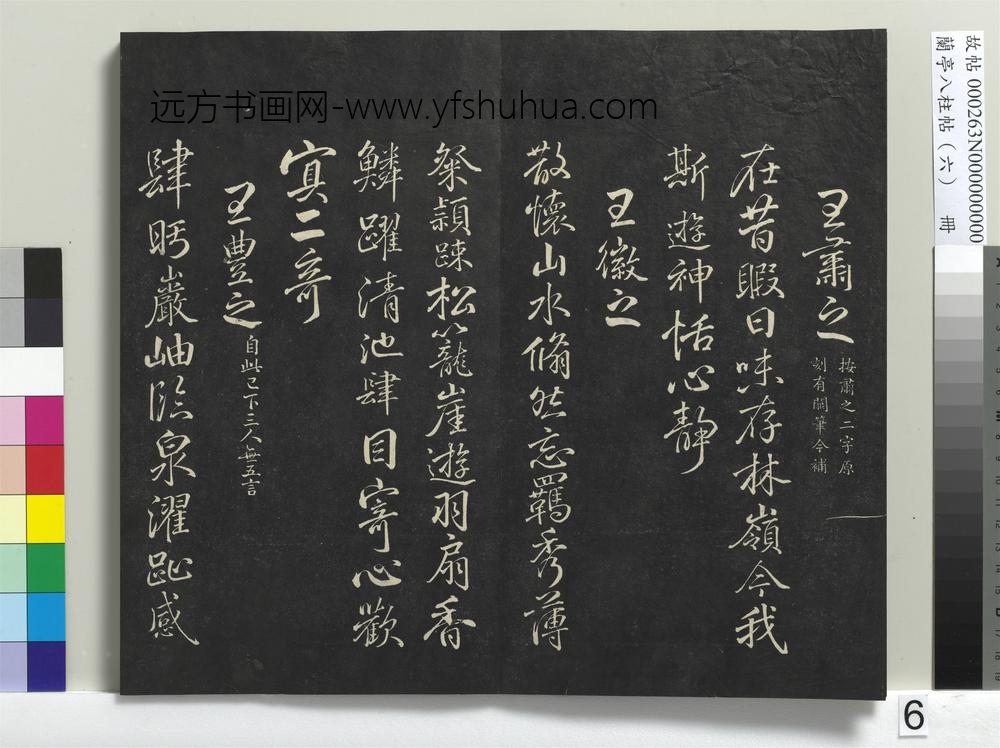 王肅之
按肅之二字原
刻有闕筆今補
在昔暇日味存林嶺今我
斯遊神恬心靜
王徽之
散懷山水翛然忘羈秀薄
粲穎疎松籠崖遊羽扇香
鱗躍清池肆目寄心歡
寘二奇
王豐之
自此已下三人無五言
肆眄巖岫臨泉濯趾感
远方书画网-www.yfshuhua.com
故帖 000263N000000000
蘭亭八柱帖（六） 冊
6